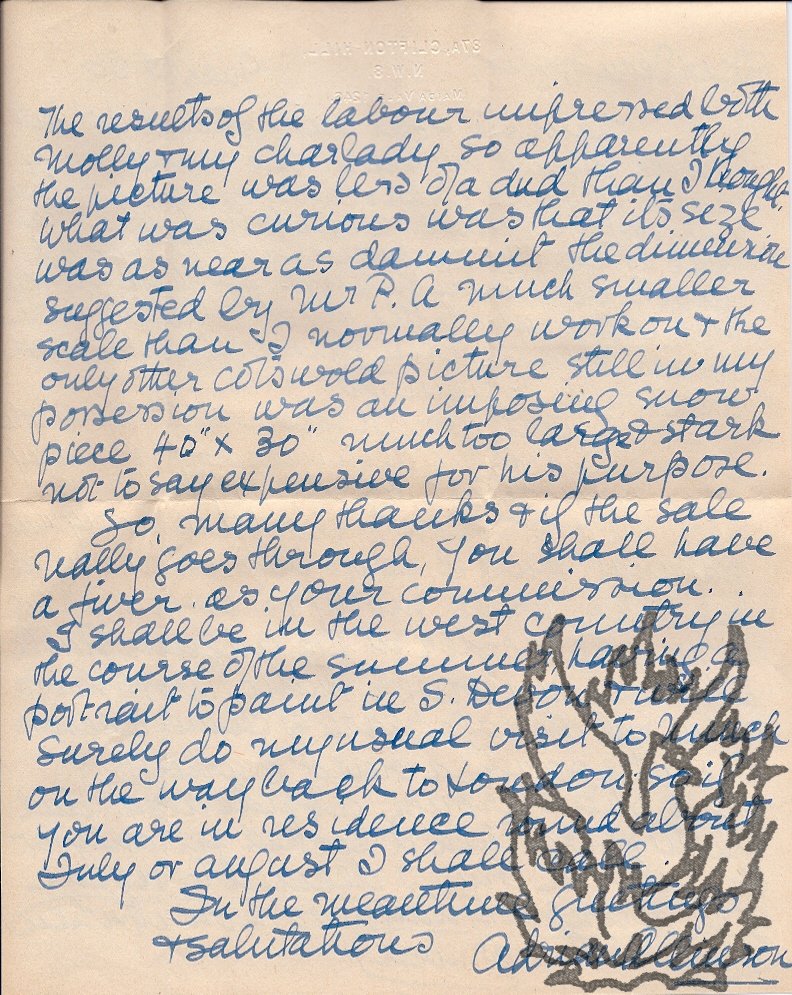 37A, CLIFTON HILL,
N.W.8
The results of the labour impressed both
Molly & my charlady, so apparently
the picture was less of a dud than I thought.
What was curious was that its size
was as near as dammit the dimension
suggested by Mr P. A much smaller
scale than I normally work on & the
only other Cotswold picture still in my
possession was an imposing snow
piece 40" x 30" much too large & stark
not to say expensive for his purpose.
So, many thanks & if the sale
really goes through, you shall have
a fiver as your commission.
I shall be in the west country in
the course of the summer, having a
portrait to paint in S. Devon & will
surely do my usual visit to
on the way back to London. So if
you are in residence round about
July or August I shall call.
In the meantime greetings
& salutations
Adrian Allinson